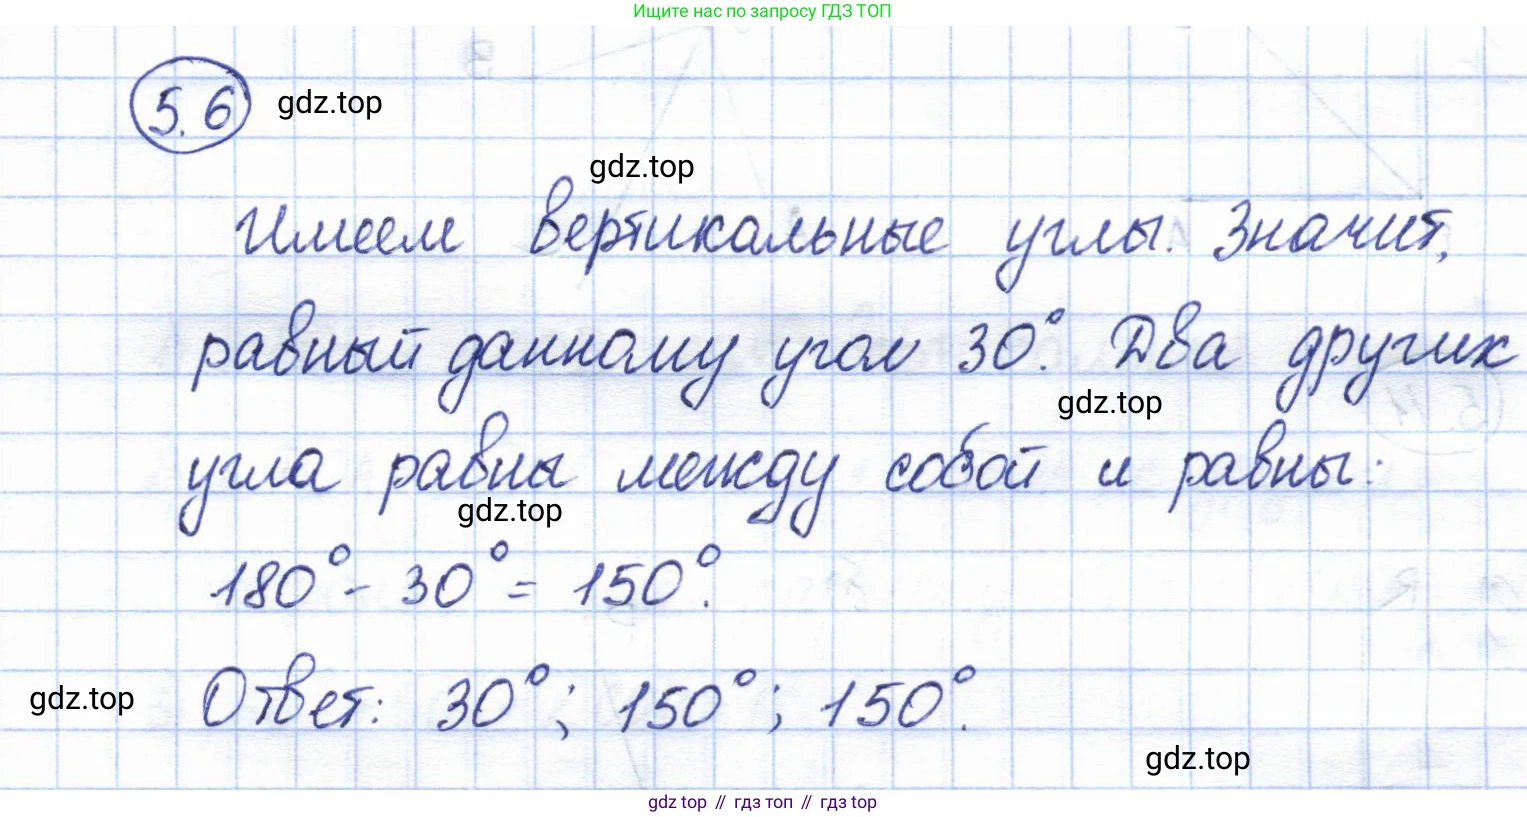 Ищите нас по запросу ГДЗ ТОП
5.6 gdz.top
gdz.top
Имеем вертикальные углы. Значит,
равный данному угол 30°. Два других
gdz.top
угла равны между собой и равны:
gdz.top
180° - 30° = 150°.
gdz.top
Ответ: 30°; 150°; 150°.
gdz.top
gdz top // гдз топ // gdz top